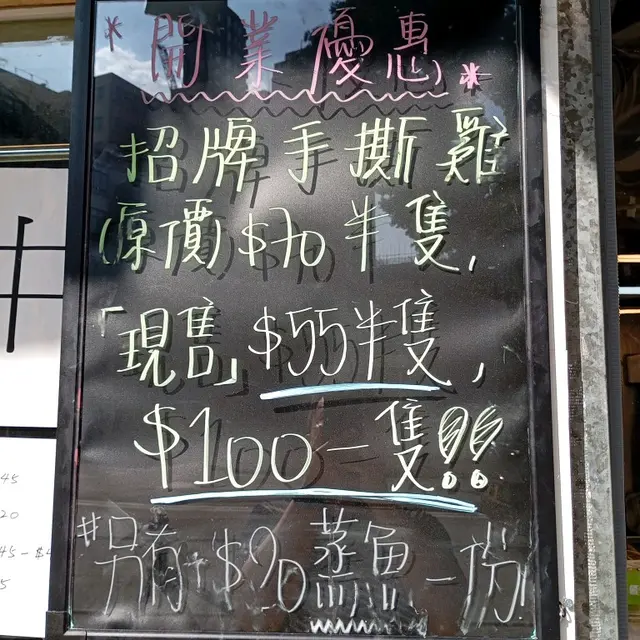 *開業優惠*
招牌手撕雞
(原價)$70半隻,
「現售」$55半隻,
$100一隻!!
#另有+$90蒸魚一份
45
20
45-$4
5